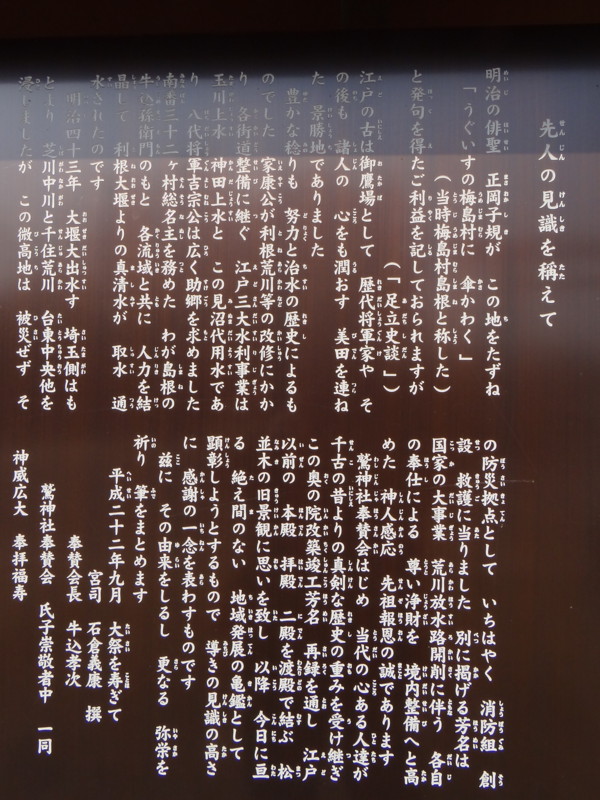 先人の見識を称えて
明治の俳聖 正岡子規が この地をたずね
「うぐいすの梅島村に 傘かわく」
(当時梅島村島根と称した)
と発句を得たご利益を記しておられますが
(「足立史談」)
江戸の古は御鷹場として 歴代将軍家や そ
の後も 諸人の 心をも潤おす 美田を連ね
た 景勝地でありました
豊かな稔りも 努力と治水の歴史によるも
のでした 家康公が利根荒川等の改修にかか
り 各街道整備に継ぐ 江戸三大水利事業は
玉川上水 神田上水と この見沼代用水であ
り 八代将軍吉宗公は広く助郷を求めました
南番三十二ヶ村総名主を務めた わが島根の
牛込孫衛門のもと 各流域と共に 人力を結
晶して 利根大堰よりの真清水が 取水 通
水されたのです
明治四十三年 大堰大出水す 埼玉側はも
とより 芝川中川と千住荒川 台東中央他を
浸しましたが この微高地は 被災せず そ
の防災拠点として いちはやく 消防組 創
設 救護に当りました 別に掲げる芳名は
国家の大事業 荒川放水路開削に伴う 各自
の奉仕による 尊い浄財を 境内整備へと高
めた 神人感応 先祖報恩の誠であります
鷲神社奉賛会はじめ 当代の心ある人達が
千古の昔よりの真剣な歴史の重みを受け継ぎ
この奥の院改築竣工芳名 再録を通し 江戸
以前の 本殿 拝殿 二殿を渡殿で結ぶ 松
並木の旧景観に思いを致し 以降 今日に亘
る 絶え間のない 地域発展の亀鑑として
顕彰しようとするもので 導きの見識の高さ
に 感謝の一念を表わすものです
茲に その由来をしるし 更なる 弥栄を
祈り 筆をまとめます
平成二十二年九月 大祭を寿ぎて
宮司 石倉義康 撰
奉賛会長 牛込孝次
鷲神社奉賛会 氏子崇敬者中 一同
神威広大 奉拝福寿